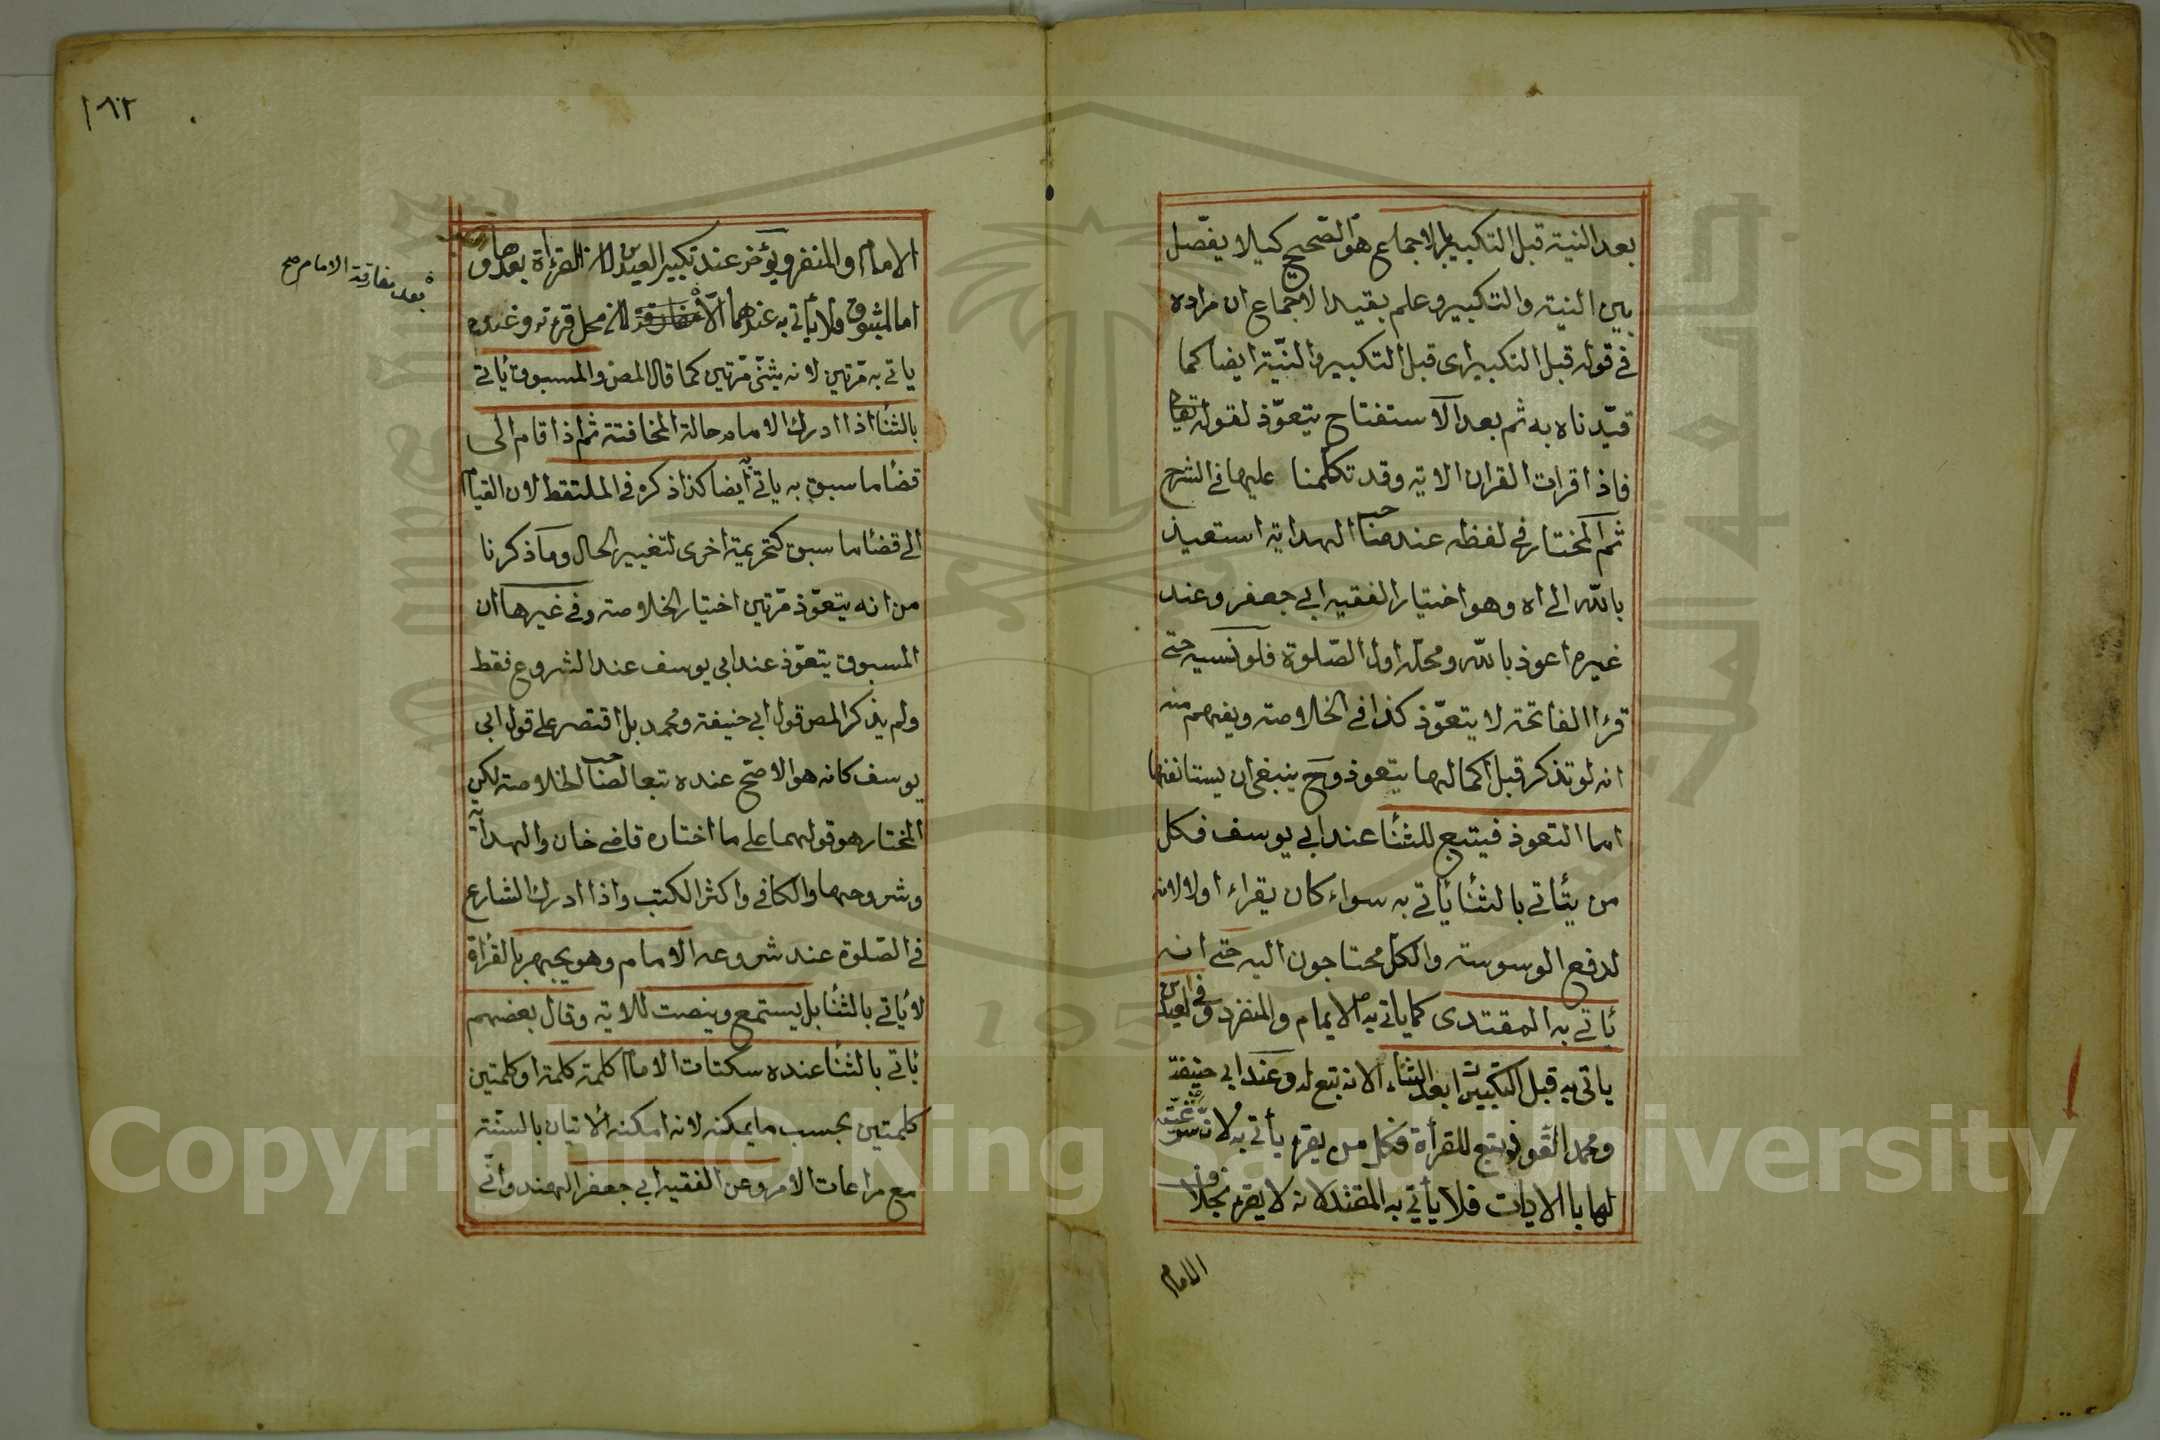 بعد النية قبل التكبير بالاجماع هو الصحيح كيلا يفصل
بين النية والتكبير وعلم بقيد الاجماع ان مراده
في قوله قبل التكبير اى قبل التكبير والنية ايضا كما
قيدناه به ثم بعد الاستفتاح يتعوذ لقوله تعالى
فاذا قرات القران الاية وقد تكلمنا عليها في الشرح
ثم المختار في لفظه عند صاحب الهداية استعيذ
بالله الى اه وهو اختيار الفقيه ابي جعفر وعند
غيره اعوذ بالله ومحله اول الصلوة فلو نسيه حتى
قرا الفاتحة لا يتعوذ كذا في الخلاصة ويفهم منه
انه لو تذكر قبل اكمالها يتعوذ وح ينبغي ان يستانفها
اما التعوذ فيتبع للثنا عند ابي يوسف فكل
من ياتي بالثنا ياتي به سواء كان يقراء اولا لانه
لدفع الوسوسة والكل محتاجون اليه حتى انه
ياتي به المقتدى كما ياتي به الامام والمنفرد وفي العيدين
ياتي به قبل التكبيرات بعد الثناء لانه تبع له وعند ابي حنيفة
ومحمد التعوذ يتبع للقرأة فكل من يقرء يأتي به لانه
لها با الايات فلا يأتي به المقتد لانه لا يقرء بخلاف
الامام
١٨٢
الامام والمنفرد ويؤخر عند تكبير العيدين لان القراءة بعدها و
بعد مفارقة الامام صح
اما المسبوق فلا يأتي به عندهما الا لانه محل قرءته وعنده
ياتي به مرتين لانه يثنى مرتين كما قال المص والمسبوق ياتي
بالثنا اذا ادرك الامام حالة المخافتة ثم اذا قام الى
قضا ما سبق به ياتي ايضا كذا ذكره في الملتقط لان القيام
الى قضا ما سبق كتحريمة اخرى لتغيير الحال وما ذكرنا
من انه يتعوذ مرتين اختيار الخلاصة وفي غيرها ان
المسبوق يتعوذ عند ابي يوسف عند الشروع فقط
ولم يذكر المص قول ابي حنيفة ومحمد بل اقتصر على قول ابى
يوسف كانه هو الاصح عنده تبعا لصاحب الخلاصة لكن
المختار هو قولهما على ما اختاره قاضي خان والهداية
وشروحها والكافي واكثر الكتب واذا ادرك الشارع
في الصلوة عند شروعه الامام وهو يجهر بالقرأة
لا ياتي بالثنا بل يستمع وينصت للاية وقال بعضهم
ياتي بالثنا عنده سكتات الامام كلمة كلمة او كلمتين
كلمتين بحسب ما يمكنه لانه امكنه الاتيان بالسنة
مع مراعات الامر وعن الفقيه ابي جعفر الهندواني